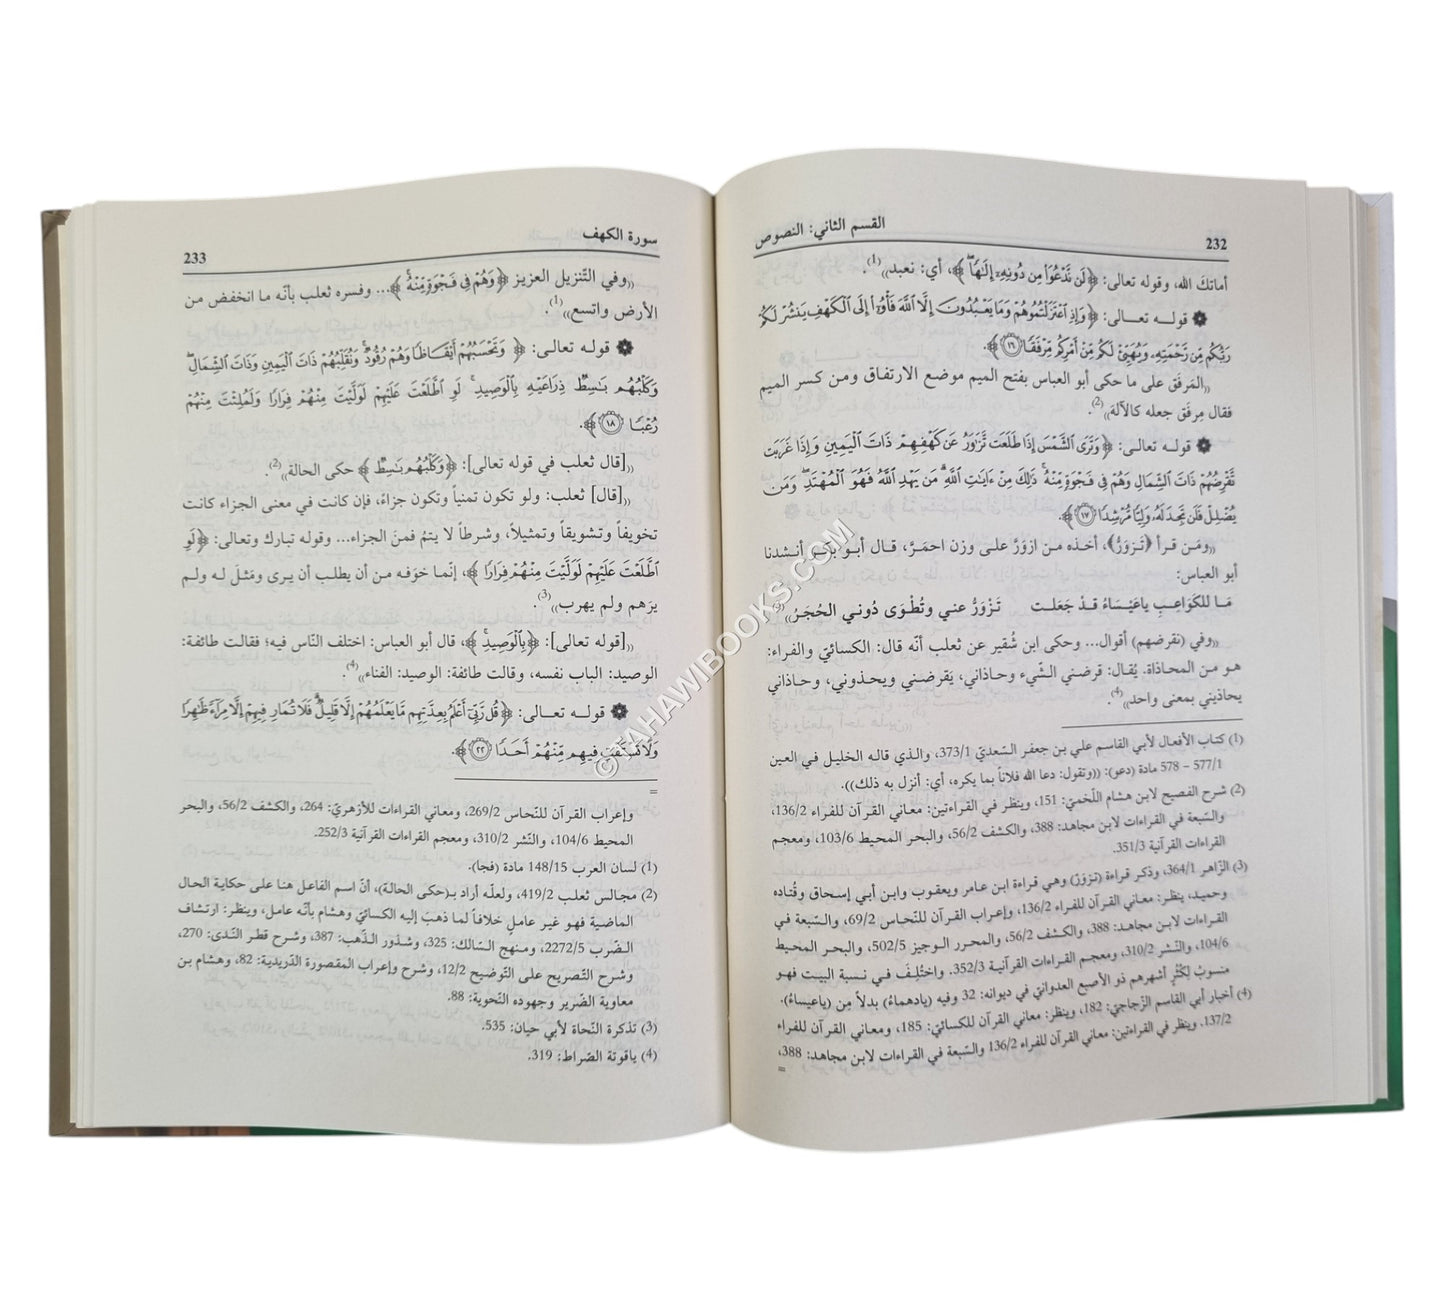 232
القسم الثاني: النصوص
أماتكَ الله، وقوله تعالى: ﴿لَن نَّدْعُوَا۟ مِن دُونِهِۦٓ إِلَـٰهًا﴾، أي: نعبد))(1).
قولـه تعـالى: ﴿وَإِذِ ٱعْتَزَلْتُمُوهُمْ وَمَا يَعْبُدُونَ إِلَّا ٱللَّهَ فَأْوُۥٓا۟ إِلَى ٱلْكَهْفِ يَنشُرْ لَكُمْ
رَبُّكُم مِّن رَّحْمَتِهِۦ وَيُهَيِّئْ لَكُم مِّنْ أَمْرِكُم مِّرْفَقًا ١٦﴾.
((المَرفَق على ما حكى أبو العباس بفتح الميم موضع الارتفاق ومن كسر الميم
فقال مِرفَق جعله كالآلة))(2).
قولـه تعالى: ﴿وَتَرَى ٱلشَّمْسَ إِذَا طَلَعَت تَّزَٰوَرُ عَن كَهْفِهِمْ ذَاتَ ٱلْيَمِينِ وَإِذَا غَرَبَت
تَّقْرِضُهُمْ ذَاتَ ٱلشِّمَالِ وَهُمْ فِى فَجْوَةٍ مِّنْهُ ۚ ذَٰلِكَ مِنْ ءَايَـٰتِ ٱللَّهِ ۗ مَن يَهْدِ ٱللَّهُ فَهُوَ ٱلْمُهْتَدِ ۖ وَمَن
يُضْلِلْ فَلَن تَجِدَ لَهُۥ وَلِيًّا مُّرْشِدًا ١٧﴾.
((ومَن قرأ ﴿تَزوَرُّ﴾، أخذه من ازوَرَّ على وزن احمَرَّ، قال أبو بكر أنشدنا
أبو العباس:
مَا للكَوَاعِبِ ياعَيْسَاءُ قدْ جَعَلت تَزْوَرُّ عني وتُطْوَى دُوني الحُجَرُ))(3)
((وفي (تقرضهم) أقوال... وحكى ابن شُقير عن ثعلب أنّه قال: الكسائيّ والفراء:
هو من المحاذاة. يُقال: قرضني الشّيء وحاذاني، يَقرضني ويحذوني، وحاذاني
يحاذيني بمعنى واحد))(4).
(1) كتاب الأفعال لأبي القاسم علي بن جعفر السّعديّ 373/1، والذي قاله الخليل في العين
577/1 – 578 مادة (دعو): ((وتقول: دعا الله فلاناً بما يكره، أي: أنزل به ذلك)).
(2) شرح الفصيح لابن هشام اللّخميّ: 151، وينظر في القراءتين: معاني القرآن للفراء 136/2،
والسّبعة في القراءات لابن مجاهد: 388، والكشف 56/2، والبحر المحيط 103/6، ومعجم
القراءات القرآنية 351/3.
(3) الزّاهر 364/1، وذكر قراءة (تزوَرّ) وهي قراءة ابن عامر ويعقوب وابن أبي إسحاق وقُتاده
وحميد، ينظر: معاني القرآن للفراء 136/2، وإعراب القرآن للنّحاس 69/2، والسّبعة في
القراءات لابن مجاهد: 388، والكشف 56/2، والمحرر الوجيز 502/5، والبحر المحيط
104/6، والنّشر 310/2، ومعجم القراءات القرآنية 352/3. واختُلِفَ في نسبة البيت فهو
منسوبٌ لِكُثْرٍ أشهرهم ذو الأصبع العدواني في ديوانه: 32 وفيه (يادهماءُ) بدلاً مِن (ياعيساءُ).
(4) أخبار أبي القاسم الزّجاجيّ: 182، وينظر: معاني القرآن للكسائيّ: 185، ومعاني القرآن للفراء
137/2. وينظر في القراءتين: معاني القرآن للفراء 136/2 والسّبعة في القراءات لابن مجاهد: 388،
=
سورة الكهف
233
((وفي التّنزيل العزيز ﴿وَهُمْ فِى فَجْوَةٍ مِّنْهُ ۚ﴾... وفسره ثعلب بأنّه ما انخفض من
الأرض واتسع))(1).
قوله تعالى: ﴿وَتَحْسَبُهُمْ أَيْقَاظًا وَهُمْ رُقُودٌ ۚ وَنُقَلِّبُهُمْ ذَاتَ ٱلْيَمِينِ وَذَاتَ ٱلشِّمَالِ ۖ
وَكَلْبُهُم بَـٰسِطٌ ذِرَاعَيْهِ بِٱلْوَصِيدِ ۚ لَوِ ٱطَّلَعْتَ عَلَيْهِمْ لَوَلَّيْتَ مِنْهُمْ فِرَارًا وَلَمُلِئْتَ مِنْهُمْ
رُعْبًا ١٨﴾.
(([قال ثعلب في قوله تعالى]: ﴿وَكَلْبُهُم بَـٰسِطٌ﴾ حكى الحالة))(2).
(([قال] ثعلب: ولو تكون تمنياً وتكون جزاءً، فإن كانت في معنى الجزاء كانت
تخويفاً وتشويقاً وتمثيلاً، وشرطاً لا يتمُ فمنَ الجزاء... وقوله تبارك وتعالى: ﴿لَوِ
ٱطَّلَعْتَ عَلَيْهِمْ لَوَلَّيْتَ مِنْهُمْ فِرَارًا﴾، إنّما خوّفه من أن يطلب أن يرى ومَثلَ له ولم
يرَهم ولم يهرب))(3).
(([قوله تعالى]: ﴿بِٱلْوَصِيدِ ۚ﴾، قال أبو العباس: اختلف النّاس فيه؛ فقالت طائفة:
الوصيد: الباب نفسه، وقالت طائفة: الوصيد: الفناء))(4).
قولـه تعـالى: ﴿قُل رَّبِّىٓ أَعْلَمُ بِعِدَّتِهِم مَّا يَعْلَمُهُمْ إِلَّا قَلِيلٌ ۗ فَلَا تُمَارِ فِيهِمْ إِلَّا مِرَآءً ظَـٰهِرًا
وَلَا تَسْتَفْتِ فِيهِم مِّنْهُمْ أَحَدًا ٢٢﴾.
=
وإعراب القرآن للنّحاس 269/2، ومعاني القراءات للأزهريّ: 264، والكشف 56/2، والبحر
المحيط 104/6، والنّشر 310/2، ومعجم القراءات القرآنية 252/3.
(1) لسان العرب 148/15 مادة (فجا).
(2) مجالس ثعلب 419/2، ولعلّه أراد بـ(حكى الحالة)، أنّ اسم الفاعل هنا على حكاية الحال
الماضية فهو غير عاملٍ خلافاً لما ذهبَ إليه الكسائيّ وهشام بأنّه عامل، وينظر: ارتشاف
الضّرب 2272/5، ومنهج السّالك: 325، وشذور الذّهب: 387، وشرح قطر النّدى: 270،
وشرح التّصريح على التّوضيح 12/2، وشرح وإعراب المقصورة الدّريدية: 82، وهشام بن
معاوية الضّرير وجهوده النّحوية: 88.
(3) تذكرة النّحاة لأبي حيان: 535.
(4) ياقوتة الصّراط: 319.
© TAHAWIBOOKS.COM